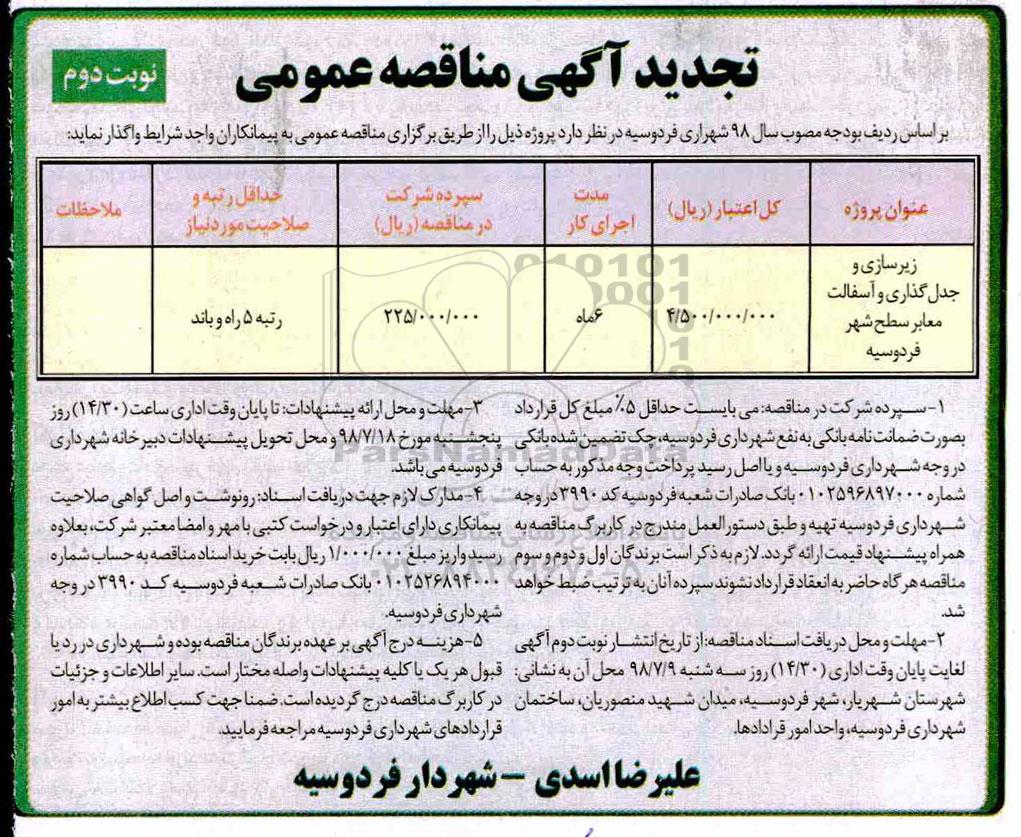 تجدید آگهی مناقصه عمومی
نوبت دوم
بر اساس ردیف بودجه مصوب سال ۹۸ شهراری فردوسیه در نظر دارد پروژه ذیل را از طریق برگزاری مناقصه عمومی به پیمانکاران واجد شرایط واگذار نماید:
عنوان پروژه
کل اعتبار (ریال)
مدت
اجرای کار
سپرده شرکت
در مناقصه (ریال)
حداقل رتبه و
صلاحیت مورد نیاز
ملاحظات
زیرسازی و
جدل گذاری و آسفالت
معابر سطح شهر
فردوسیه
۴/۵۰۰/۰۰۰/۰۰۰
۶ماه
۲۲۵/۰۰۰/۰۰۰
رتبه ۵ راه و باند
۱- سپرده شرکت در مناقصه: می بایست حداقل ۵٪ مبلغ کل قرارداد
بصورت ضمانت نامه بانکی به نفع شهرداری فردوسیه، چک تضمین شده بانکی
در وجه شهرداری فردوسیه و یا اصل رسید پرداخت وجه مذکور به حساب
شماره ۰۱۰۲۵۹۶۸۹۷۰۰۰ بانک صادرات شعبه فردوسیه کد ۳۹۹۰ در وجه
شهرداری فردوسیه تهیه و طبق دستورالعمل مندرج در کاربرگ مناقصه به
همراه پیشنهاد قیمت ارائه گردد. لازم به ذکر است برندگان اول و دوم و سوم
مناقصه هرگاه حاضر به انعقاد قرارداد نشوند سپرده آنان به ترتیب ضبط خواهد
شد.
۲- مهلت و محل دریافت اسناد مناقصه: از تاریخ انتشار نوبت دوم آگهی
لغایت پایان وقت اداری (۱۴/۳۰) روز سه شنبه ۹۸/۷/۹ محل آن به نشانی:
شهرستان شهریار، شهر فردوسیه، میدان شهید منصوریان، ساختمان
شهرداری فردوسیه، واحد امور قرادادها.
۳- مهلت و محل ارائه پیشنهادات: تا پایان وقت اداری ساعت (۱۴/۳۰) روز
پنجشنبه مورخ ۹۸/۷/۱۸ و محل تحویل پیشنهادات دبیرخانه شهرداری
فردوسیه می باشد.
۴- مدارک لازم جهت دریافت اسناد: رونوشت و اصل گواهی صلاحیت
پیمانکاری دارای اعتبار و درخواست کتبی با مهر و امضا معتبر شرکت، بعلاوه
رسید واریز مبلغ ۱/۰۰۰/۰۰۰ ریال بابت خرید اسناد مناقصه به حساب شماره
۰۱۰۲۵۲۶۸۹۴۰۰۰ بانک صادرات شعبه فردوسیه کد ۳۹۹۰ در وجه
شهرداری فردوسیه.
۵- هزینه درج آگهی بر عهده برندگان مناقصه بوده و شهرداری در رد یا
قبول هر یک یا کلیه پیشنهادات واصله مختار است. سایر اطلاعات و جزئیات
در کاربرگ مناقصه درج گردیده است. ضمنا جهت کسب اطلاع بیشتر به امور
قراردادهای شهرداری فردوسیه مراجعه فرمایید.
علیرضا اسدی - شهردار فردوسیه
ParsNamadData